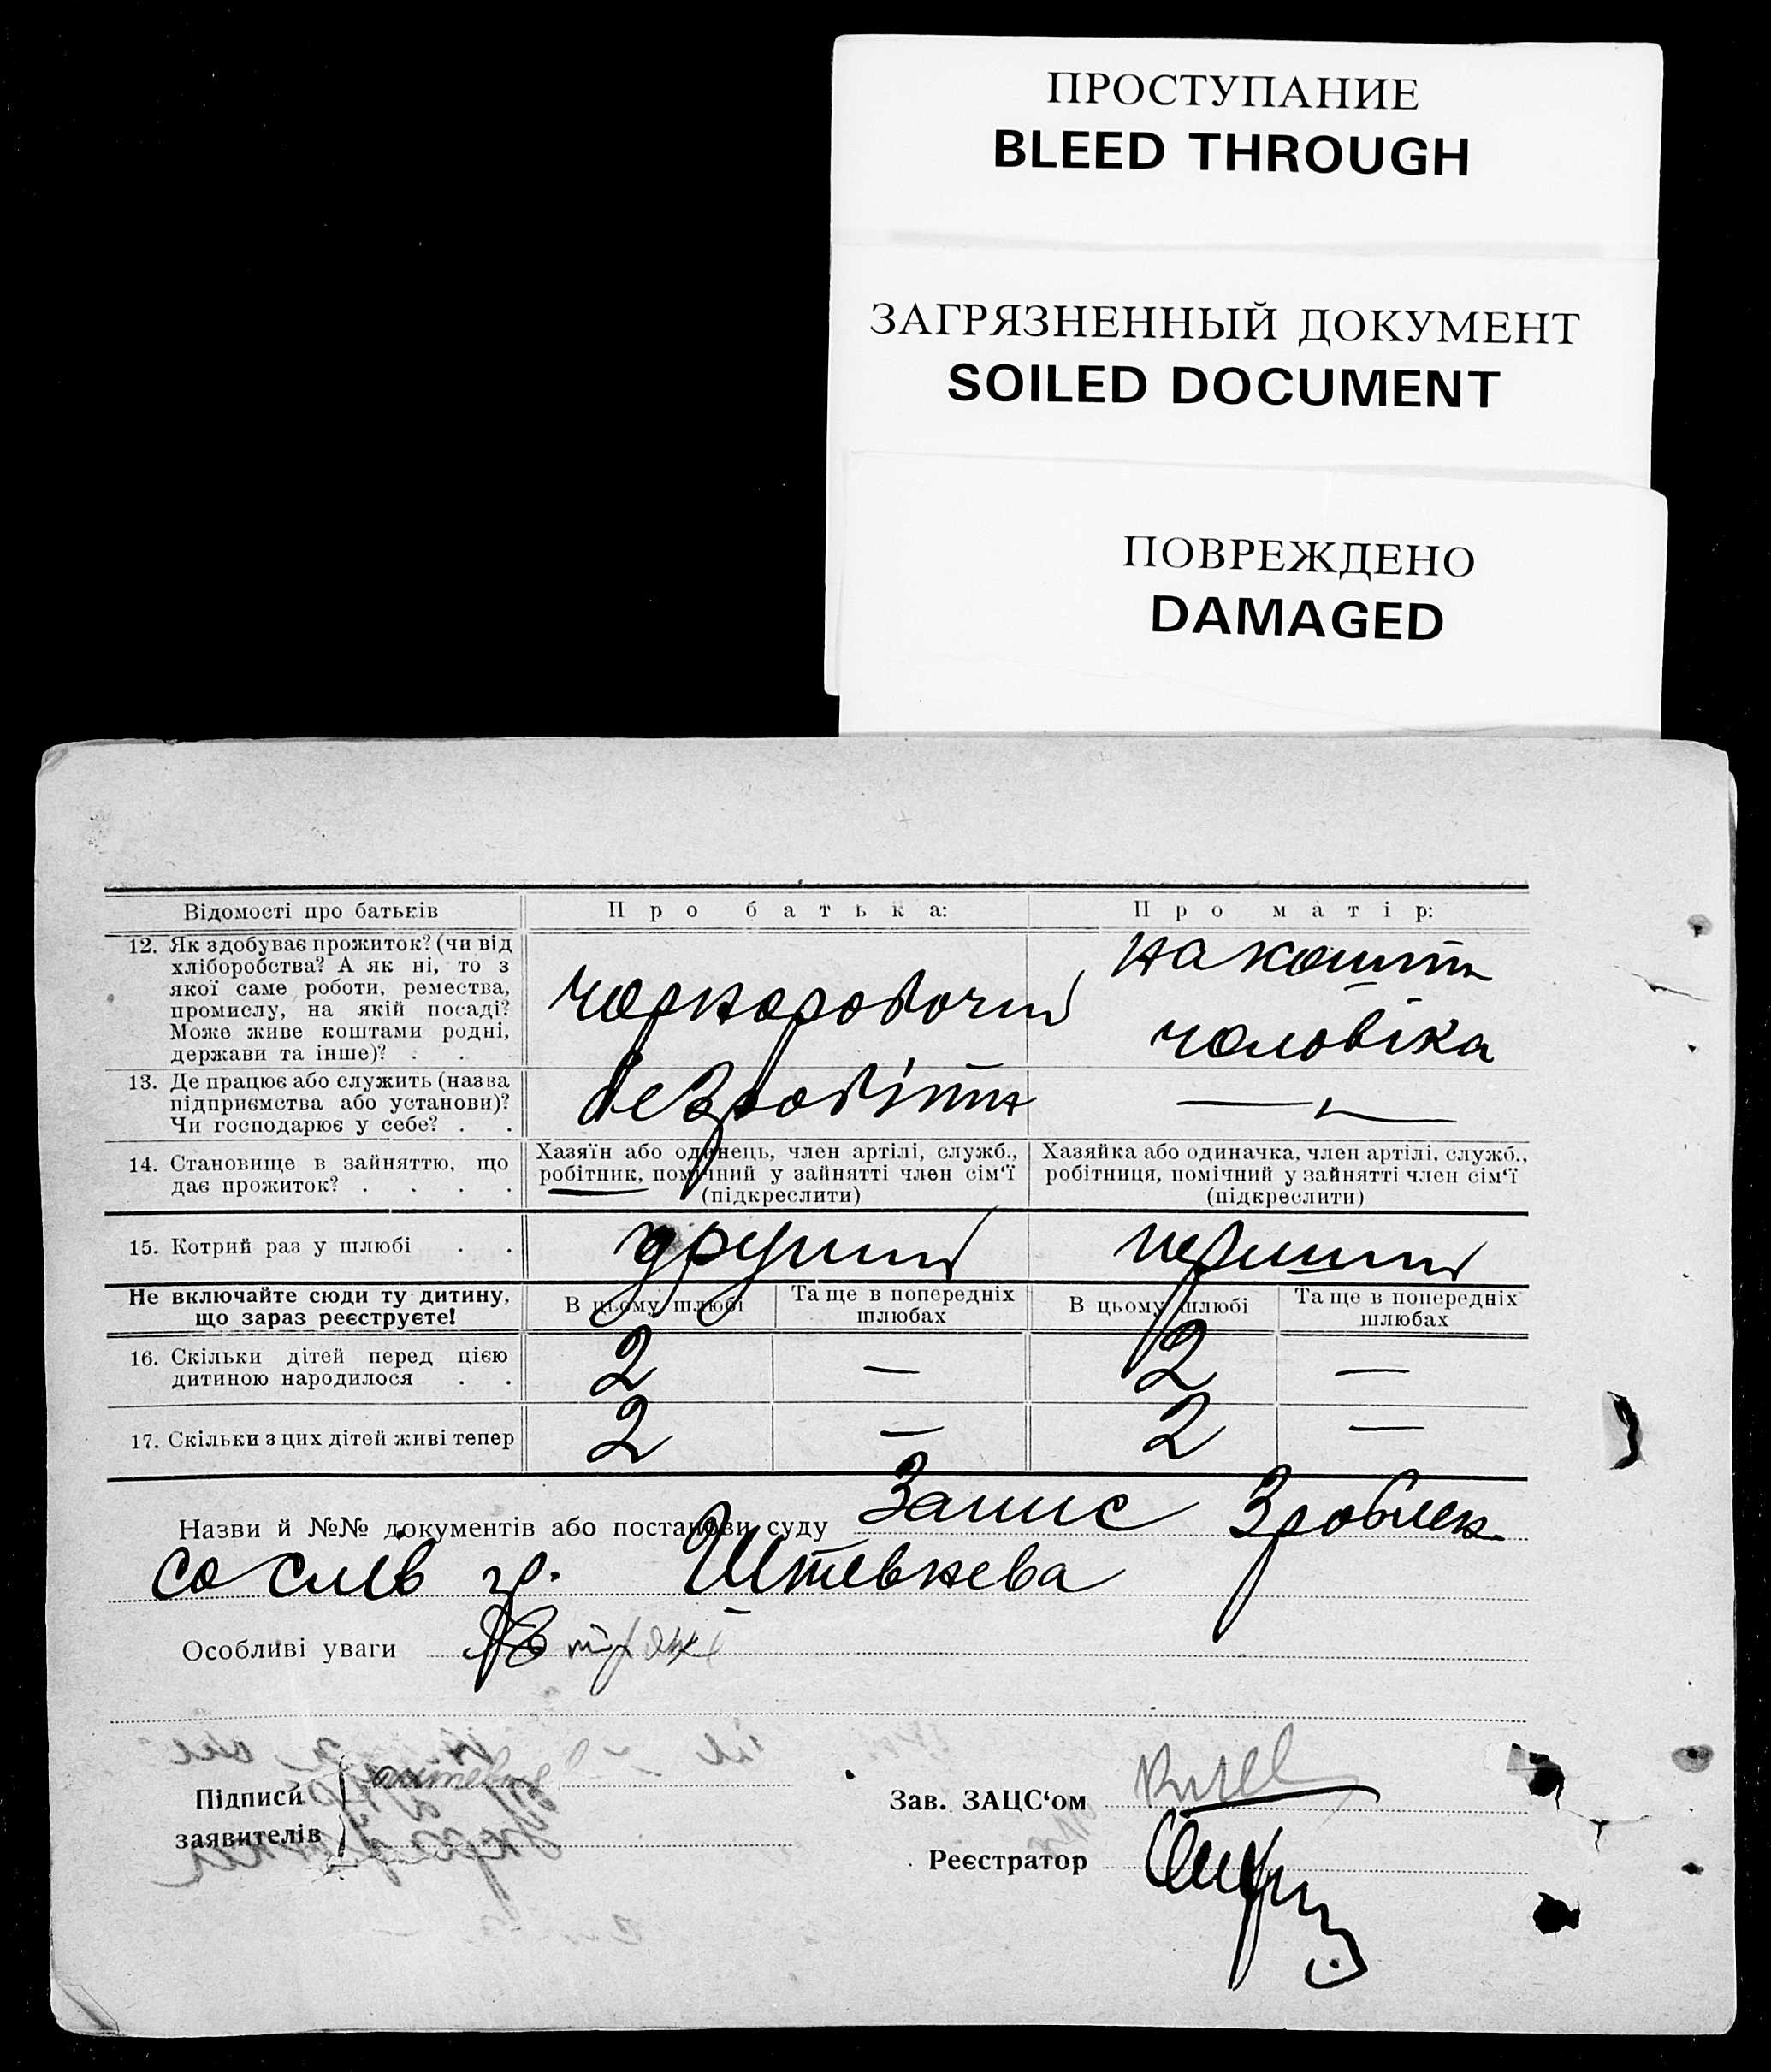 ПРОСТУПАНИЕ
BLEED THROUGH
ЗАГРЯЗНЕННЫЙ ДОКУМЕНТ
SOILED DOCUMENT
ПОВРЕЖДЕНО
DAMAGED
Відомості про батьків
Про батька:
Про матір:
12. Як здобуває прожиток? (чи від
хліборобства? А як ні, то з
якої саме роботи, ремества,
промислу, на якій посаді?
Може живе коштами родні,
держави та інше)? . .
чорноробочий
на кошти
чоловіка
13. Де працює або служить (назва
підприємства або установи)?
Чи господарює у себе? . .
безробітн
14. Становище в зайняттю, що
дає прожиток? . . . .
Хазяїн або одинець, член артілі, служб.,
робітник, помічний у зайнятті член сім‘ї
(підкреслити)
Хазяйка або одиначка, член артілі, служб.,
робітниця, помічний у зайнятті член сім‘ї
(підкреслити)
15. Котрий раз у шлюбі . .
другий
перший
Не включайте сюди ту дитину,
що зараз реєструєте!
В цьому шлюбі
Та ще в попередніх
шлюбах
В цьому шлюбі
Та ще в попередніх
шлюбах
16. Скільки дітей перед цією
дитиною народилося . .
2 — 2 —
17. Скільки з цих дітей живі тепер
2 — 2 —
Назви й №№ документів або постанови суду Запис Зроблен
со слів гр. Штевнева
Особливі уваги
Підписи
заявителів
Зав. ЗАЦС‘ом
Реєстратор